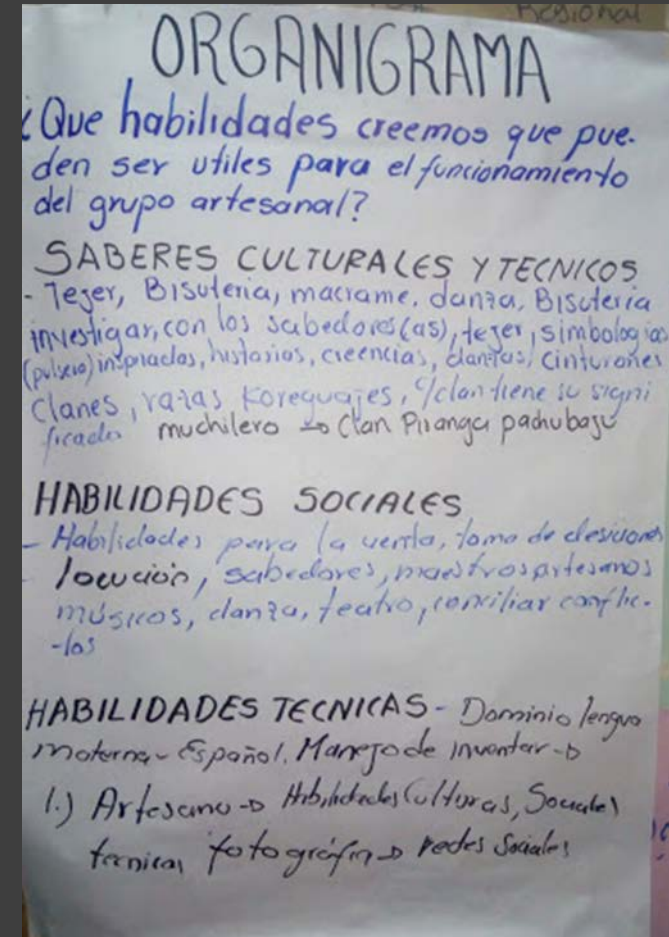 Regional
ORGANIGRAMA
¿Que habilidades creemos que pue-
den ser utiles para el funcionamiento
del grupo artesanal?
SABERES CULTURALES Y TECNICOS
- Tejer, Bisuteria, macrame, danza, Bisuteria
investigar, con los sabedores(as), tejer, simbologias
(pulsera) inspiradas, historias, creencias, danzas, cinturones
Clanes, razas Koreguajes, c/clan tiene su signi
ficado muchilero → Clan Piranga pachubaju
HABILIDADES SOCIALES
- Habilidades para la venta, toma de desiciones
- locución, sabedores, maestros artesanos
músicos, danza, teatro, conciliar conflic-
-tos
HABILIDADES TECNICAS - Dominio lengua
materna - Español. Manejo de inventar →
1.) Artesano → Habilidades Culturas, Sociales
tecnicas fotografia → redes Sociales